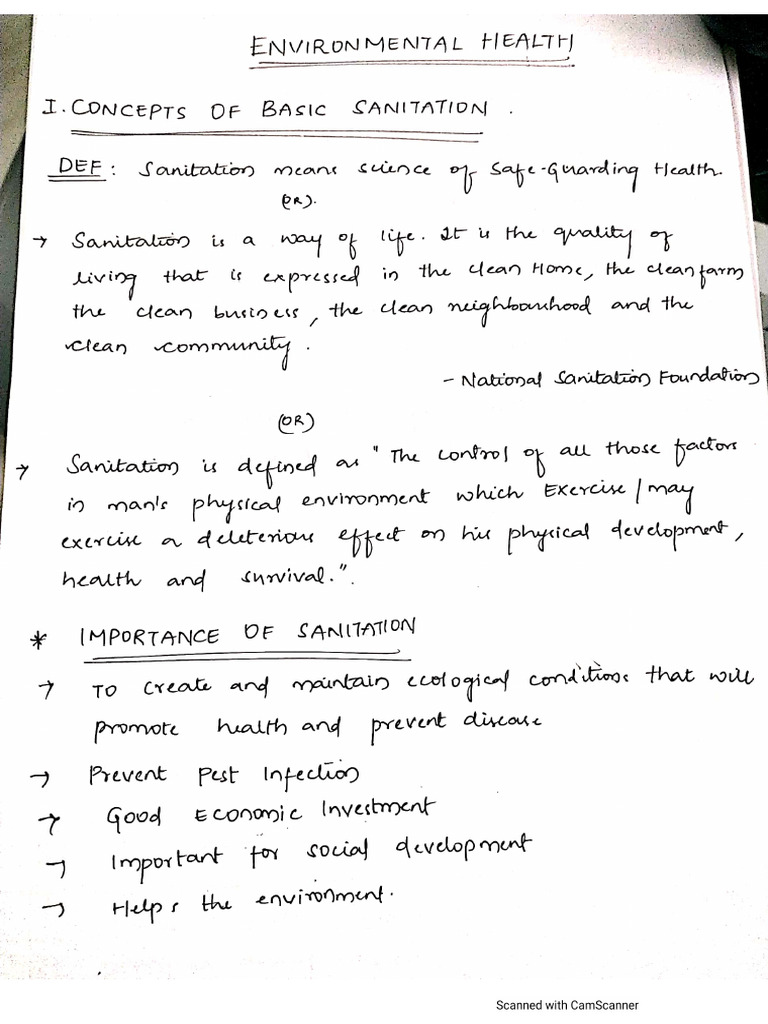 ENVIRONMENTAL HEALTH
I. CONCEPTS OF BASIC SANITATION.
DEF: Sanitation means science of Safe-Guarding Health.
(OR).
→ Sanitation is a way of life. It is the quality of
living that is expressed in the clean Home, the clean farm
the clean business, the clean neighbourhood and the
clean community.
- National Sanitation Foundation
(OR)
→ Sanitation is defined as "The control of all those factors
in man's physical environment which Exercise/may
exercise a deleterious effect on his physical development,
health and survival.".
* IMPORTANCE OF SANITATION
→ To create and maintain ecological conditions that will
promote health and prevent disease
→ Prevent Pest Infection
→ Good Economic Investment
→ Important for social development
→ Helps the environment.
Scanned with CamScanner